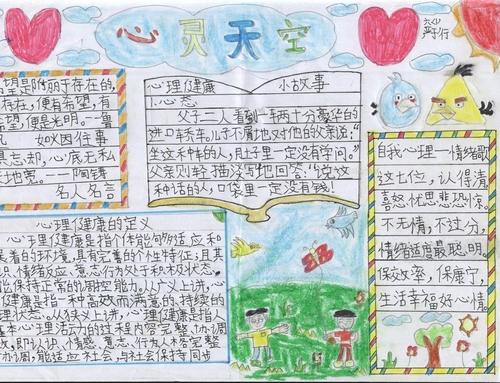 心灵天空
心理健康 小故事
1. 心态
父子二人看到一车两十分豪华的
进口轿车。儿子不屑地对他的父亲说:"
坐这种车的人,肚子里一定没有学问。"
父亲则轻描淡写地回答:"说这
种话的人,口袋里一定没有钱!
望是附丽于存在的,
存在,便有希望,有
希望,便是光明。—鲁
如果因往事
忘却,心底无私
天地宽。——陶铸
名人名言
自我心理—情绪歌
这七位,认得清
喜怒忧思悲恐惊。
不无情,不过分,
情绪适度最聪明。
保效姿,保康宁,
生活幸福好心情。
心理健康的定义
心理健康是指个体能够适应和
着的环境,具有完善的个性特征;且其
识,情绪反应,意志行为处于积极状态,
能保持正常的调控能力。从广义上讲,心
健康是指一种高效而满意的、持续的
理状态。从狭义上讲,心理健康是指人
基本心理活动的过程内容完整、协调
致,即认识、情感、意志、行为、人格完整
协调,能适应社会,与社会保持同步